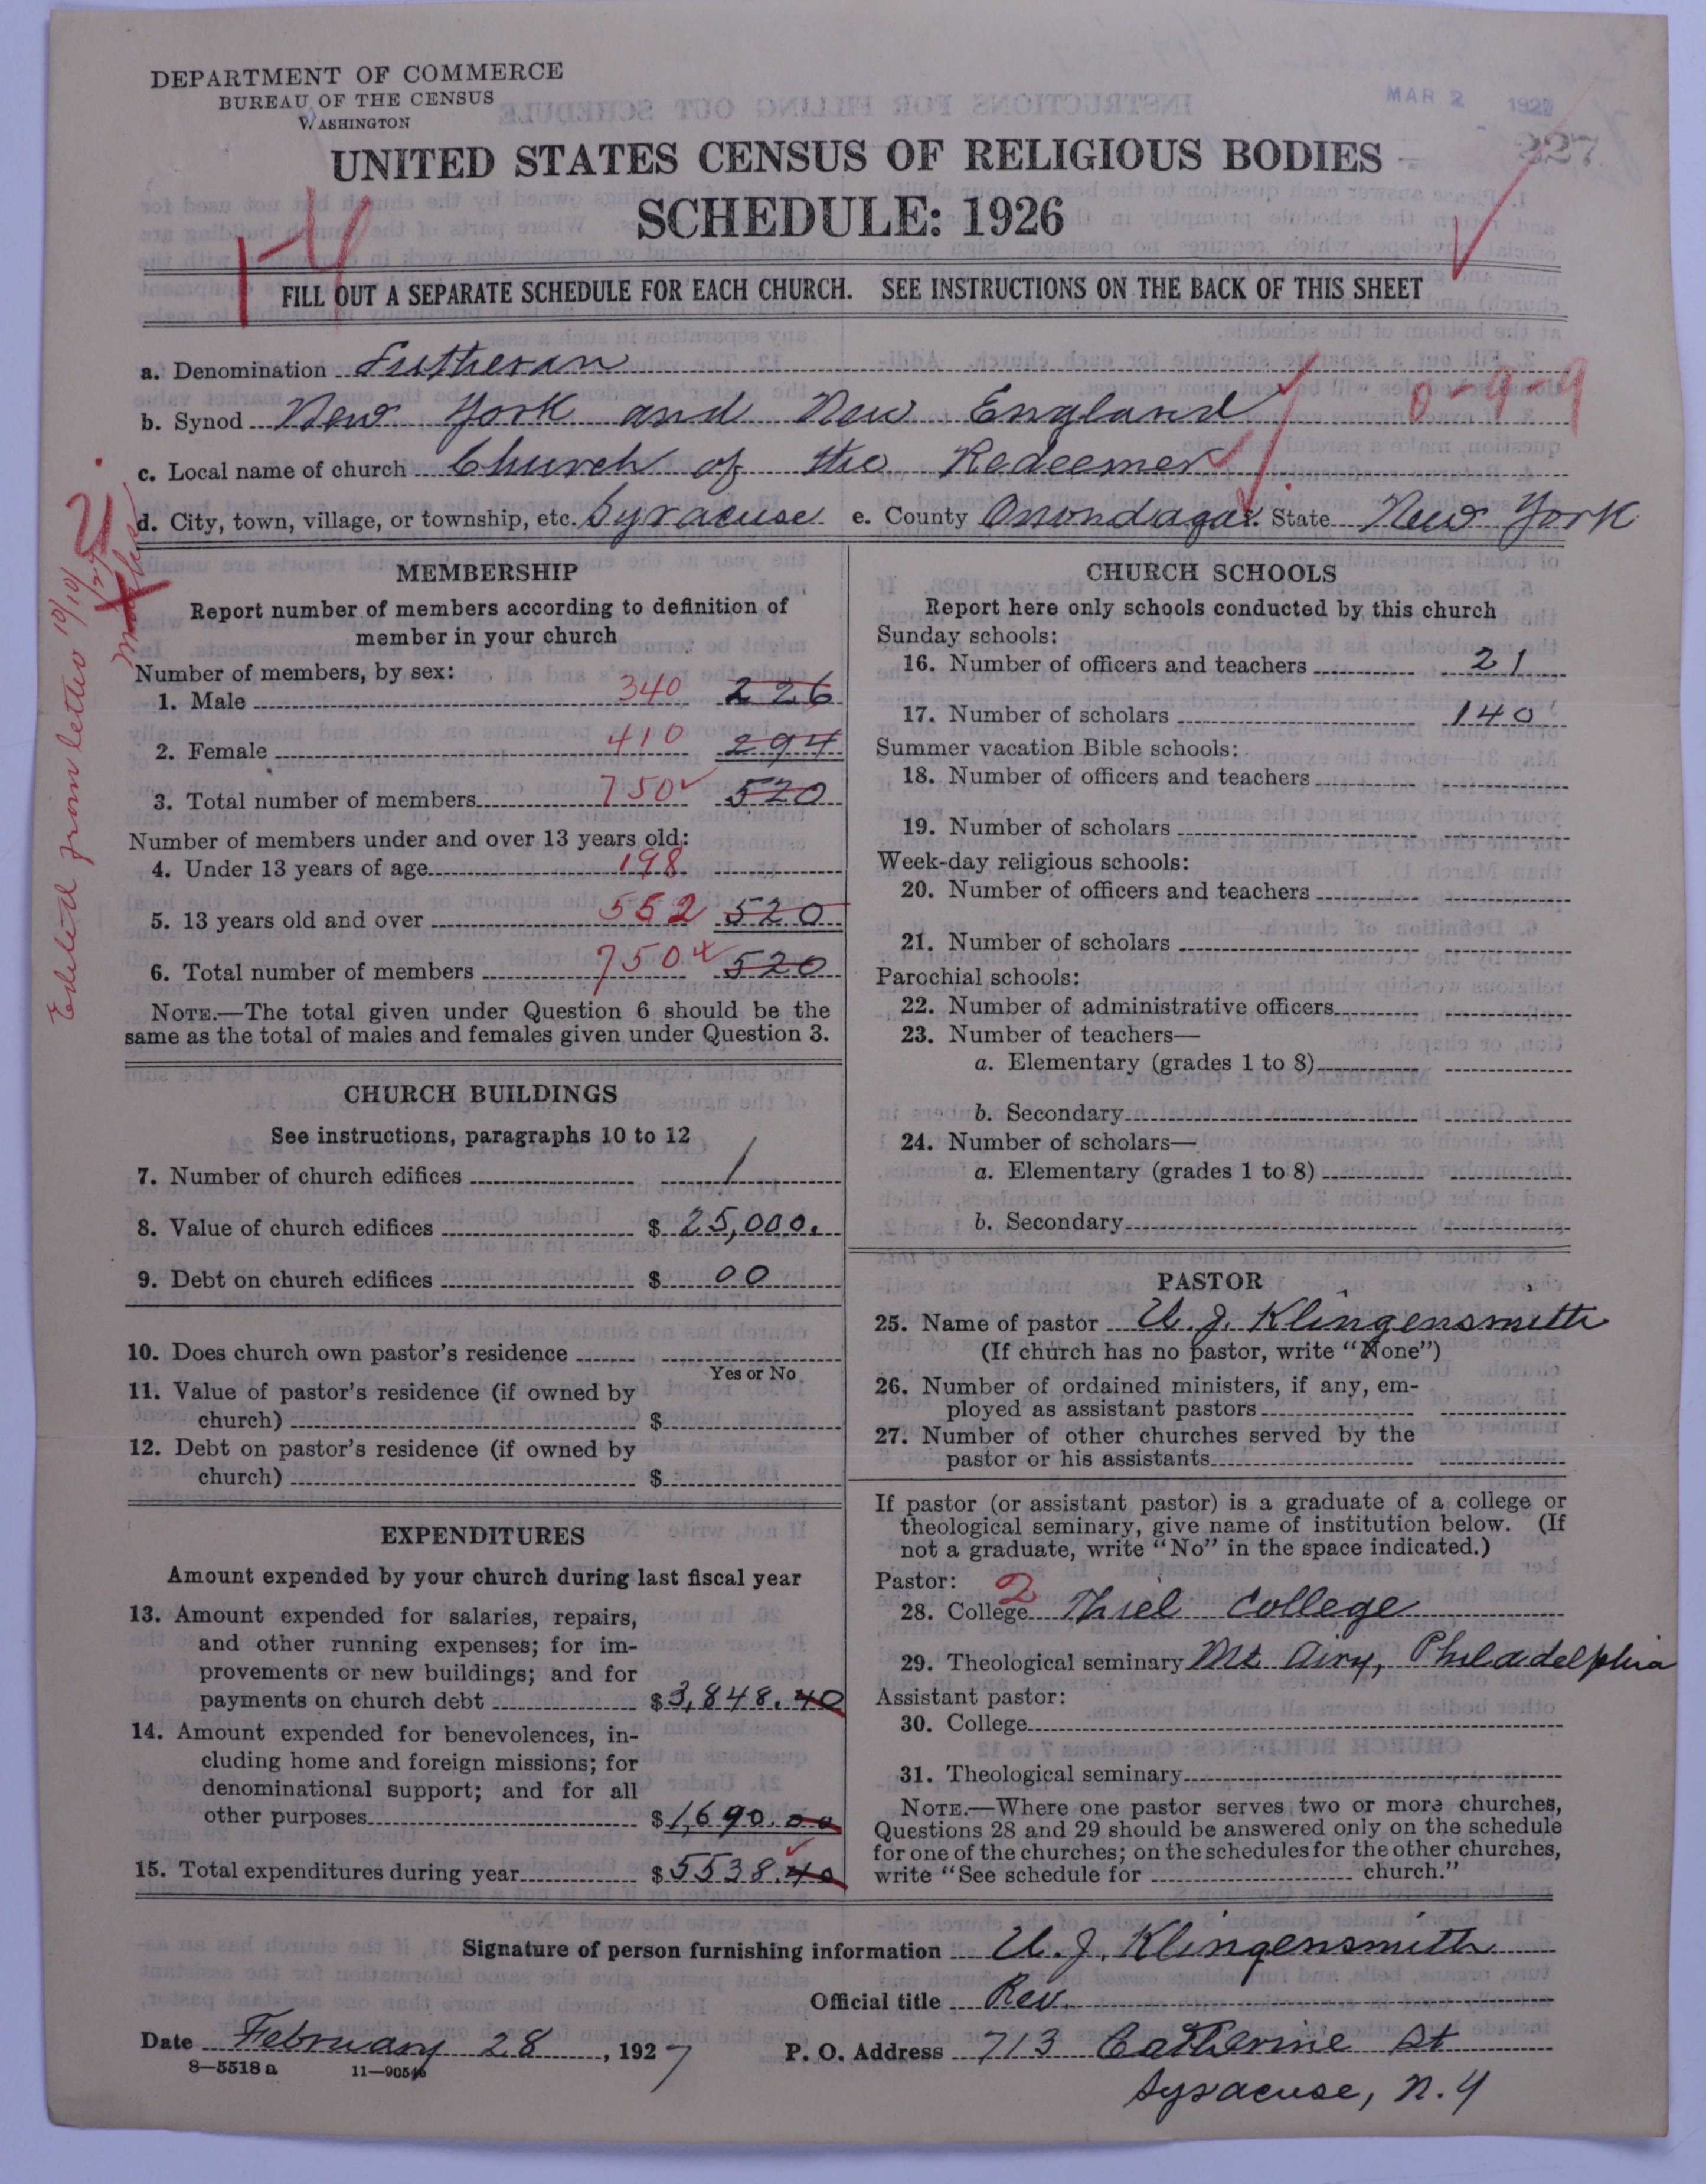 DEPARTMENT OF COMMERCE
BUREAU OF THE CENSUS
WASHINGTON
MAR 2 1927
227
UNITED STATES CENSUS OF RELIGIOUS BODIES
SCHEDULE: 1926
FILL OUT A SEPARATE SCHEDULE FOR EACH CHURCH. SEE INSTRUCTIONS ON THE BACK OF THIS SHEET
a. Denomination Lutheran
b. Synod New York and New England 0-9-9
c. Local name of church Church of the Redeemer
d. City, town, village, or township, etc. Syracuse e. County Onondaga f. State New York
Edited from letter 10/10/27
MEMBERSHIP
Report number of members according to definition of
member in your church
Number of members, by sex:
1. Male 340 226
2. Female 410 294
3. Total number of members 750 520
Number of members under and over 13 years old:
4. Under 13 years of age 198
5. 13 years old and over 552 520
6. Total number of members 750 520
NOTE.—The total given under Question 6 should be the
same as the total of males and females given under Question 3.
CHURCH BUILDINGS
See instructions, paragraphs 10 to 12
7. Number of church edifices 1
8. Value of church edifices $ 25,000.
9. Debt on church edifices $ 00
10. Does church own pastor's residence
Yes or No
11. Value of pastor's residence (if owned by
church) $
12. Debt on pastor's residence (if owned by
church) $
EXPENDITURES
Amount expended by your church during last fiscal year
13. Amount expended for salaries, repairs,
and other running expenses; for im-
provements or new buildings; and for
payments on church debt $ 3,848.40
14. Amount expended for benevolences, in-
cluding home and foreign missions; for
denominational support; and for all
other purposes $ 1,690.00
15. Total expenditures during year $ 5538.40
CHURCH SCHOOLS
Report here only schools conducted by this church
Sunday schools:
16. Number of officers and teachers 21
17. Number of scholars 140
Summer vacation Bible schools:
18. Number of officers and teachers
19. Number of scholars
Week-day religious schools:
20. Number of officers and teachers
21. Number of scholars
Parochial schools:
22. Number of administrative officers
23. Number of teachers—
a. Elementary (grades 1 to 8)
b. Secondary
24. Number of scholars—
a. Elementary (grades 1 to 8)
b. Secondary
PASTOR
25. Name of pastor U. J. Klingensmith
(If church has no pastor, write "None")
26. Number of ordained ministers, if any, em-
ployed as assistant pastors
27. Number of other churches served by the
pastor or his assistants
If pastor (or assistant pastor) is a graduate of a college or
theological seminary, give name of institution below. (If
not a graduate, write "No" in the space indicated.)
Pastor: 2
28. College Thiel College
29. Theological seminary Mt. Airy, Philadelphia
Assistant pastor:
30. College
31. Theological seminary
NOTE.—Where one pastor serves two or more churches,
Questions 28 and 29 should be answered only on the schedule
for one of the churches; on the schedules for the other churches,
write "See schedule for church."
Signature of person furnishing information U. J. Klingensmith
Official title Rev.
Date February 28, 1927 P. O. Address 713 Catherine St
8—5518a 11—90546 Syracuse, N. Y